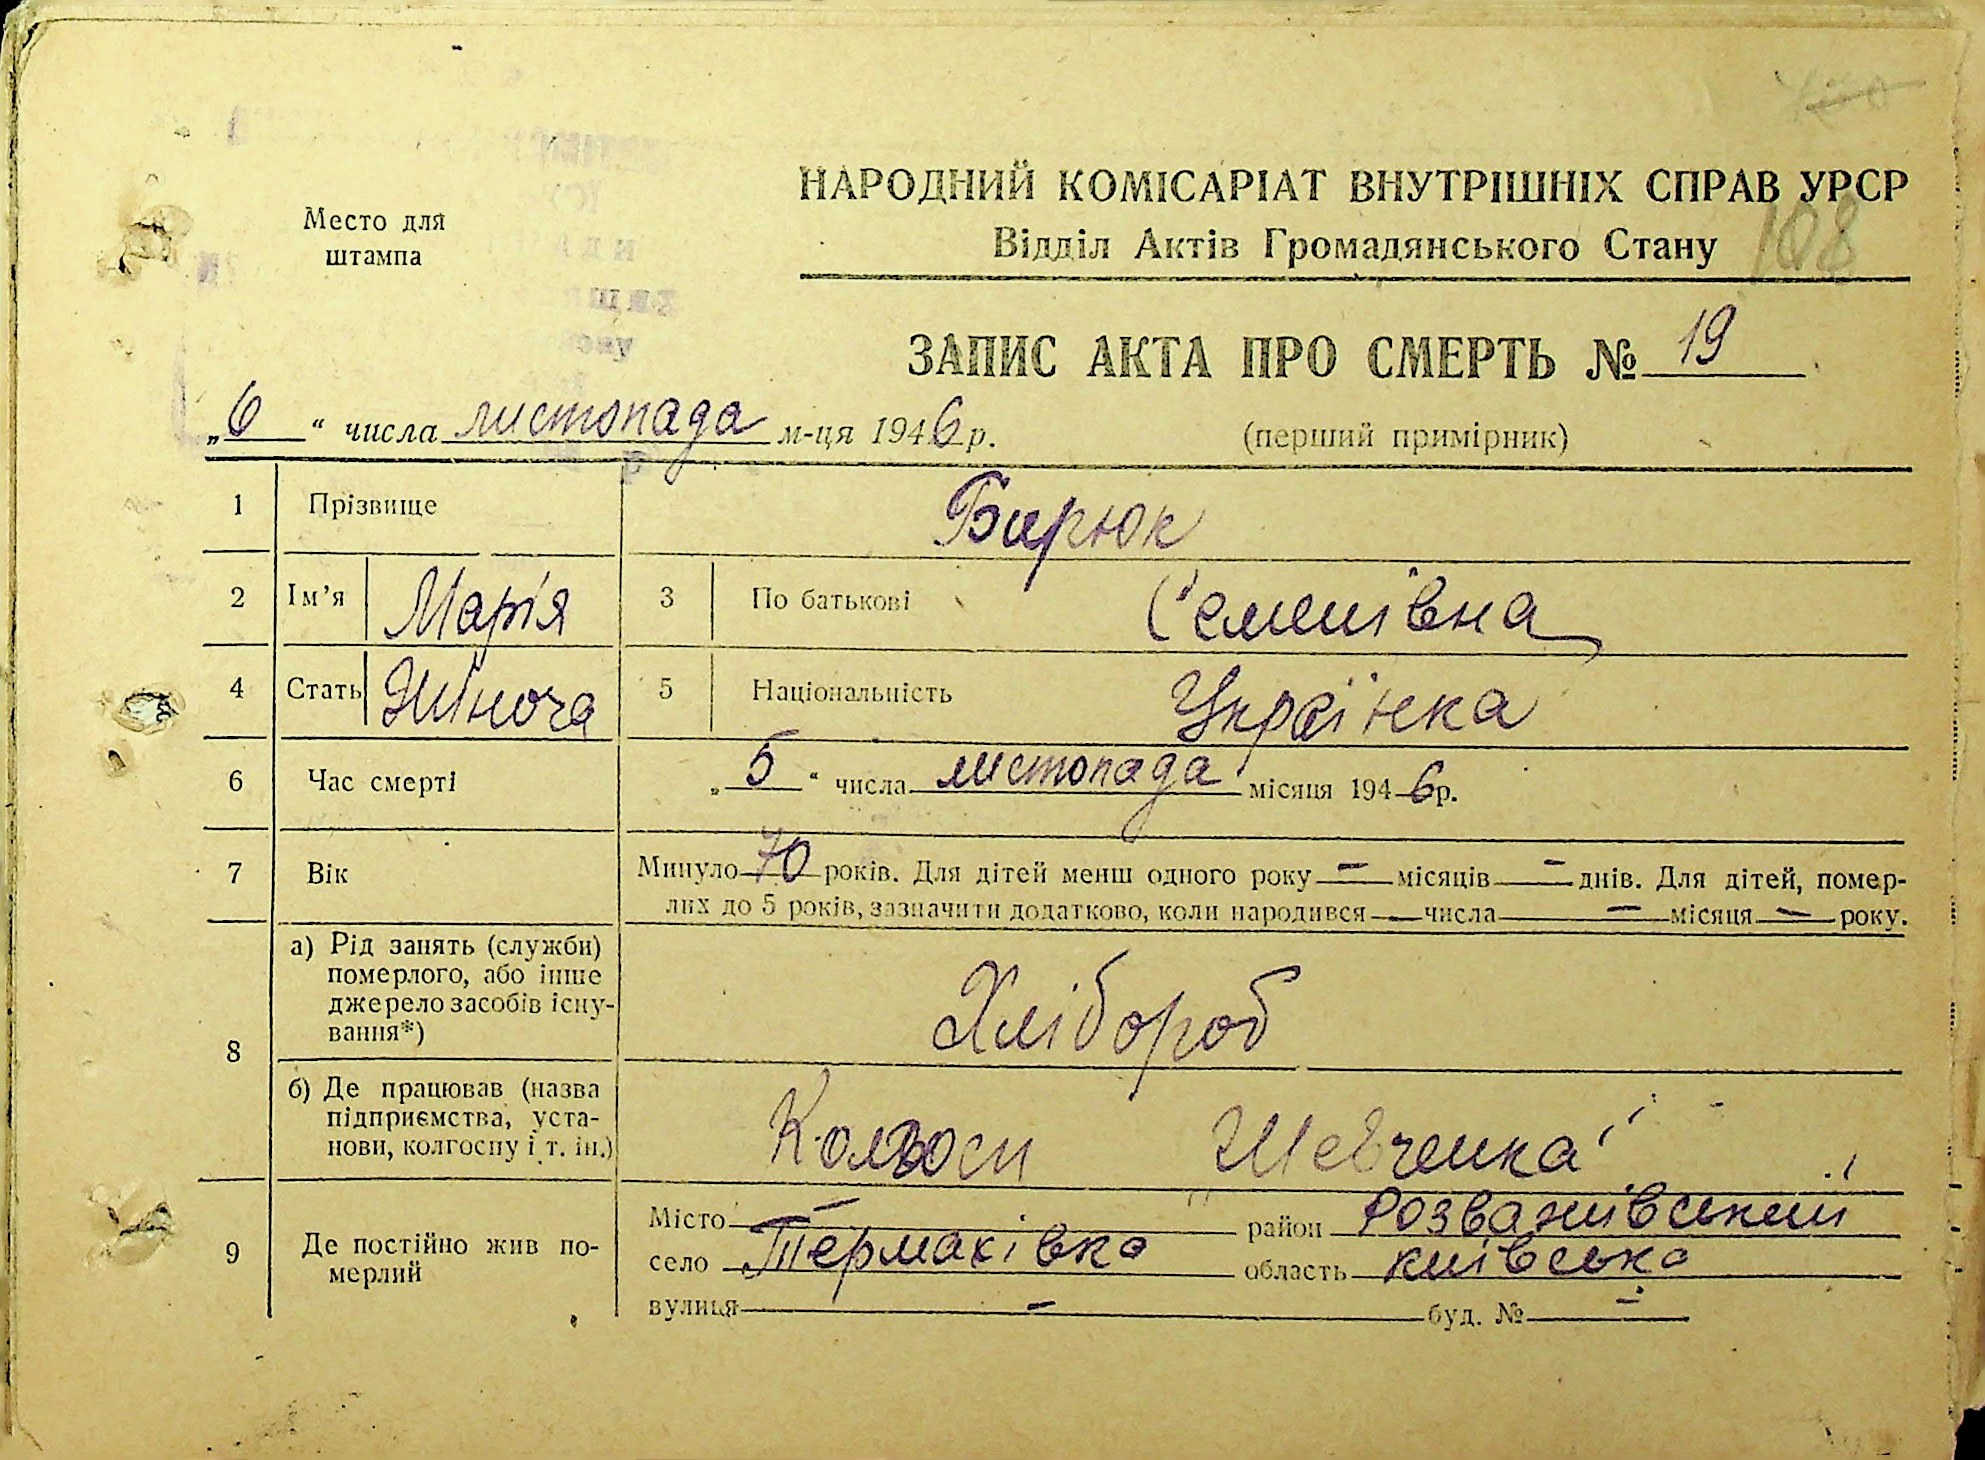 НАРОДНИЙ КОМІСАРІАТ ВНУТРІШНІХ СПРАВ УРСР
Відділ Актів Громадянського Стану
108
Место для
штампа
ЗАПИС АКТА ПРО СМЕРТЬ № 19
„6“ числа листопада м-ця 1946 р.
(перший примірник)
1 Прізвище Бирюк
2 Ім’я Марія 3 По батькові Семенівна
4 Стать Жіноча 5 Національність Українка
6 Час смерті „5“ числа листопада місяця 1946 р.
7 Вік Минуло 70 років. Для дітей менш одного року — місяців — днів. Для дітей, помер-
лих до 5 років, зазначити додатково, коли народився — числа — місяця — року.
8 а) Рід занять (служби)
померлого, або інше
джерело засобів існу-
вання*)
Хлібороб
б) Де працював (назва
підприємства, уста-
нови, колгоспу і т. ін.)
Шевченка
9 Де постійно жив по-
мерлий
Місто — район Розважівський
село Термахівка область київська
вулиця — буд. № —